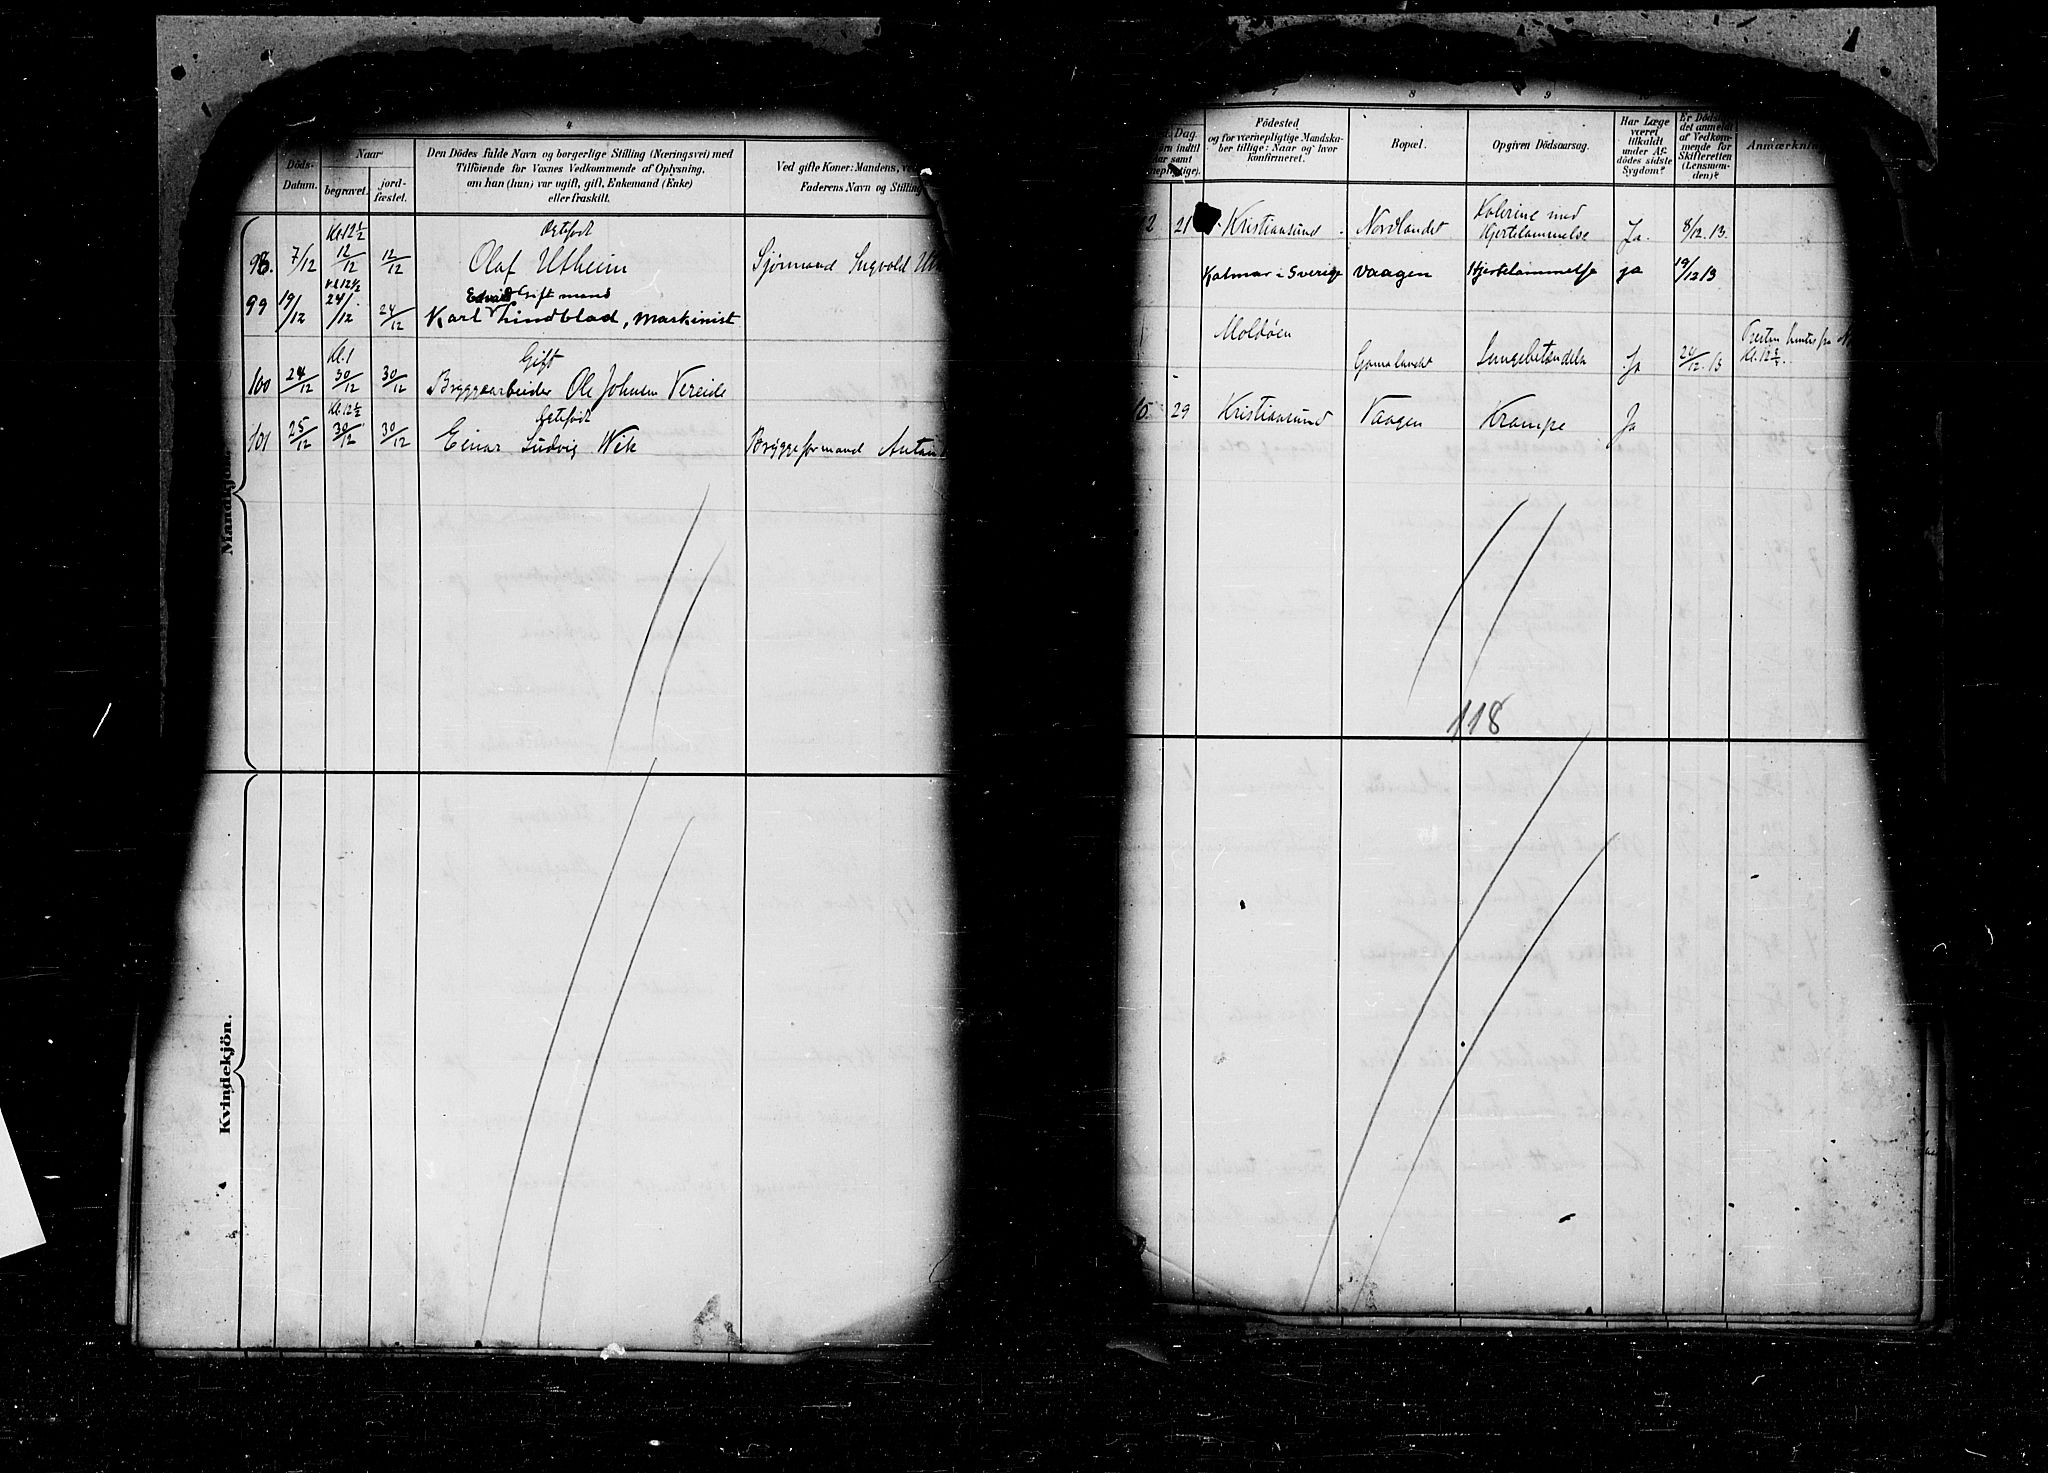 4
Döds-
Datum.
Naar
begravet.
jord-
fæstet.
Den Dödes fulde Navn og borgerlige Stilling (Næringsvei) med
Tilföiende for Voxnes Vedkommende af Oplysning,
om han (hun) var ugift, gift, Enkemand (Enke)
eller fraskilt.
Ved gifte Koner: Mandens, ve
Faderens Navn og Stilling
Kl. 12 1/2
Ægtefödt
98. 7/12 12/12 12/12 Olaf Utheim Sjømand Ingvold Uth
Kl 12 1/2
Edvard Gift mand
99 19/12 24/12 24/12 Karl Lindblad, Maskinist
Kl. 1
Gift
100 24/12 30/12 30/12 Bryggearbeider Ole Johnsen Vereide
Kl. 12 1/2
Ægtefödt
101 25/12 30/12 30/12 Einar Ludvig Wik Bryggeformand Anton
Mandkjön.
Kvindekjön.
7 8 9 10
Dag.
Födested
og for værnepligtige Mandska-
ber tillige: Naar og hvor
konfirmeret.
Bopæl.
Opgiven Dödsaarsag.
Har Læge
været
tilkaldt
under Af-
dödes sidste
Sygdom?
Er Dödsfal-
det anmeldt
af Vedkom-
mende for
Skifteretten
(Lensman-
den)?
Anmærkning
2 21 Kristiansund Nordlandet Kolerine med
Hjertelammelse Ja. 8/12.13.
Kalmar i Sverige Vaagen Hjertelammelse ja 19/12 13
Moldöen Gomalandet Lungebetændelse Ja 24/12.13
Kl. 12 1/2.
29 Kristiansund Vaagen Krampe Ja
118